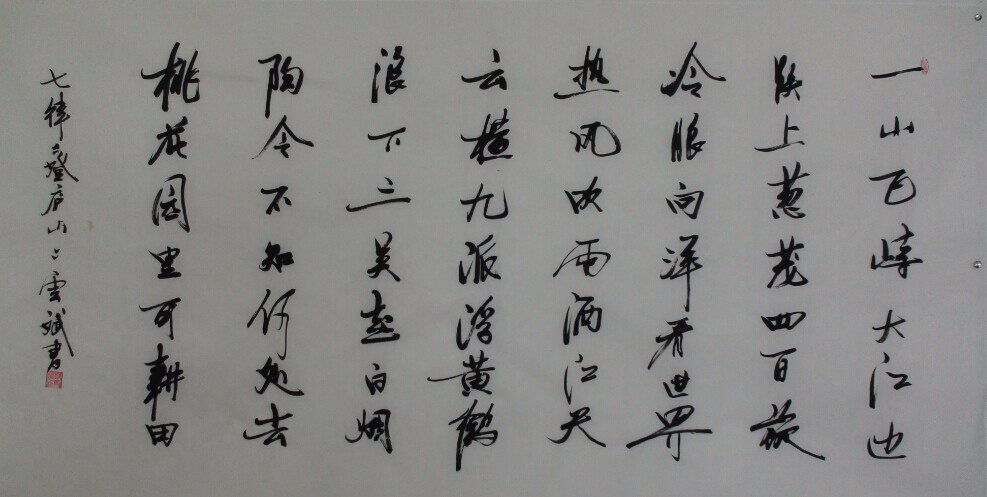 一山飞峙大江边
跃上葱茏四百旋
冷眼向洋看世界
热风吹雨洒江天
云横九派浮黄鹤
浪下三吴起白烟
陶令不知何处去
桃花园里可耕田
七律登庐山雲斌書